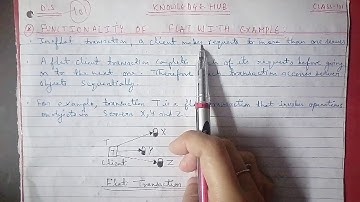 D.S
101
KNOWLEDGE HUB
FUNCTIONALITY OF FLAT WITH EXAMPLE
In flat transaction, a client makes requests to more than one server
A flat client transaction complete of its requests before going
on to the next one. Therefore transaction accesses server
objects sequentially.
For example, transaction T is a flat transaction that invokes operations
on objects in Servers X, Y and Z.
X
T
Y
Client
Z
Flat Transaction